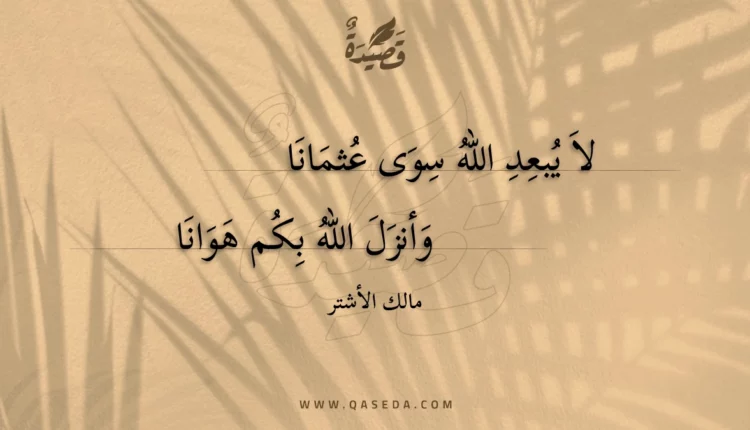 قَصِيْدَةٌ
لاَ يُبعِدِ اللهُ سِوَى عُثمَانَا
وَأنزَلَ اللهُ بِكُم هَوَانَا
مالك الأشتر
WWW.QASEDA.COM